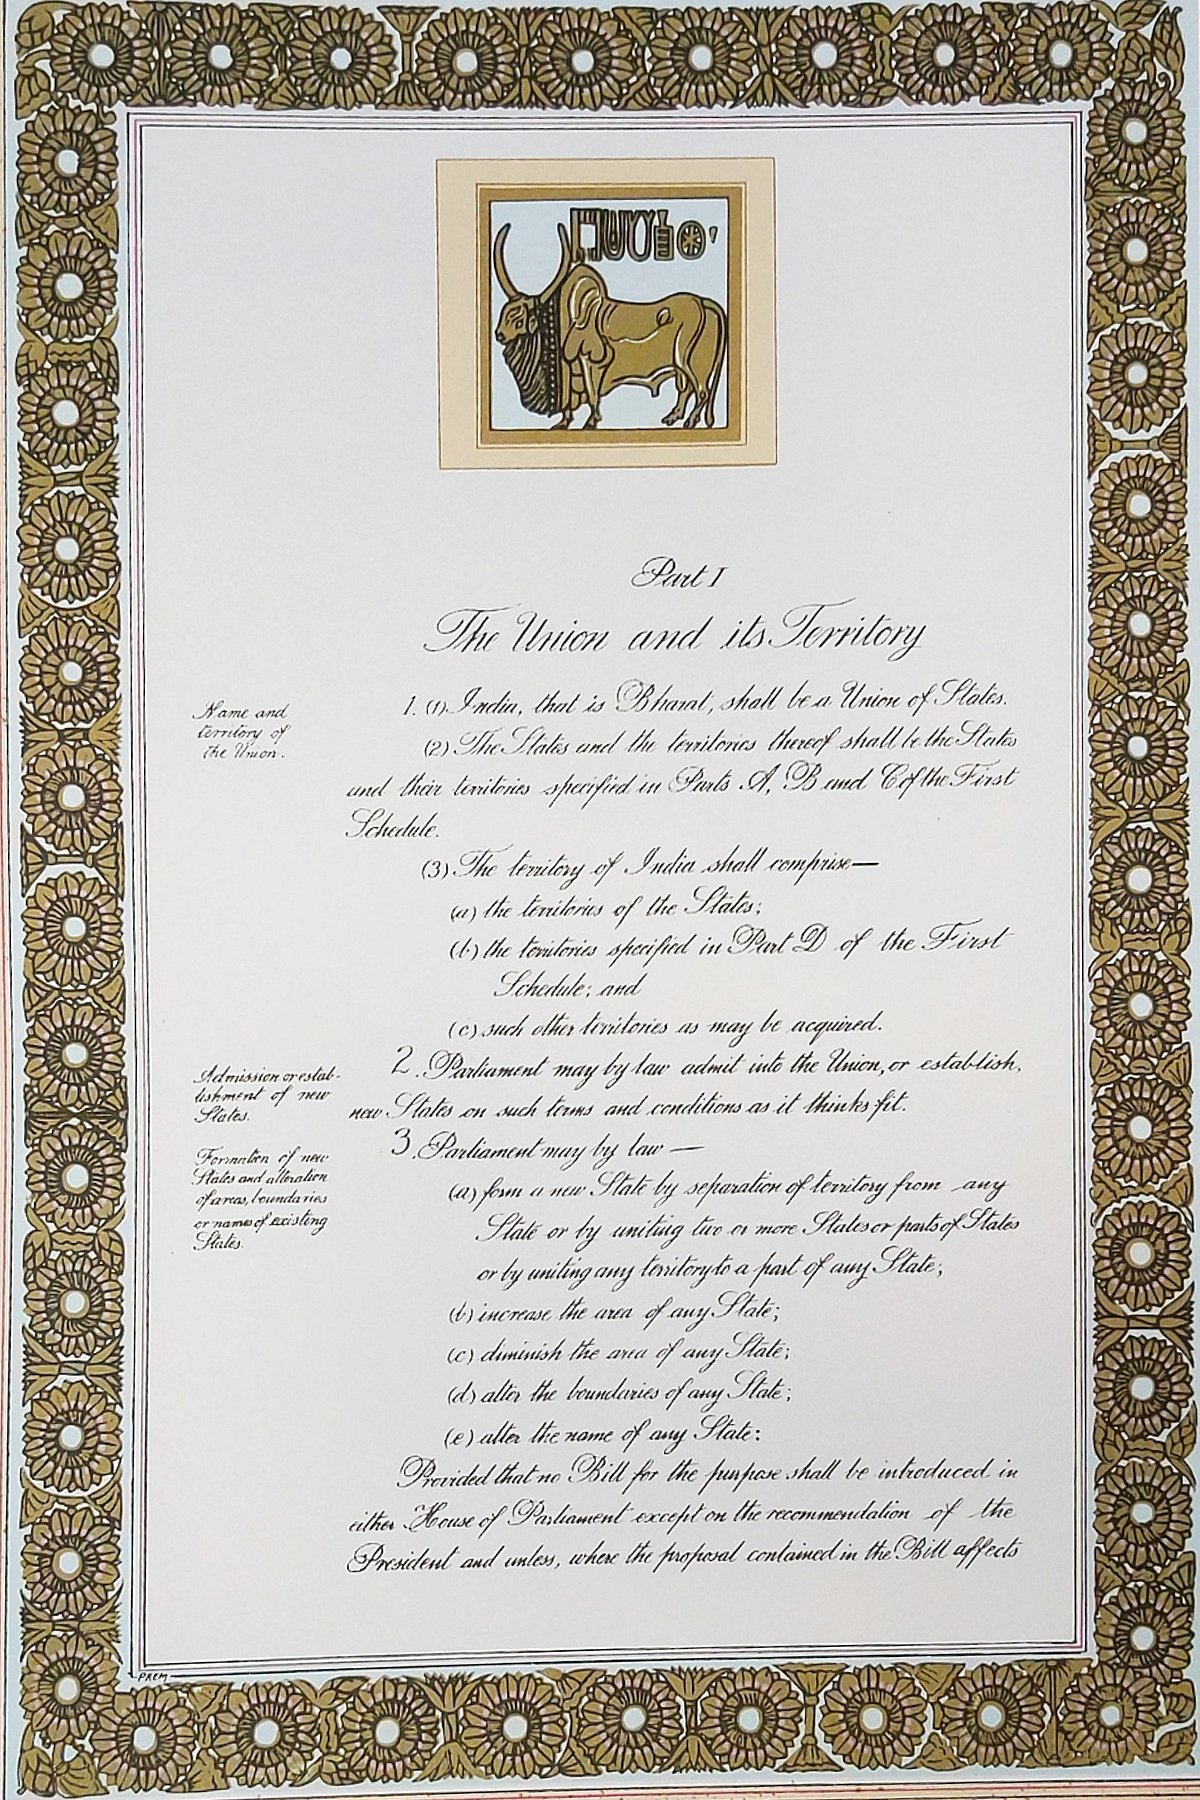 Part I
The Union and its Territory
Name and
territory of
the Union.
1. (1) India, that is Bharat, shall be a Union of States.
(2) The States and the territories thereof shall be the States
and their territories specified in Parts A, B and C of the First
Schedule.
(3) The territory of India shall comprise—
(a) the territories of the States;
(b) the territories specified in Part D of the First
Schedule; and
(c) such other territories as may be acquired.
Admission or estab-
lishment of new
States.
2. Parliament may by law admit into the Union, or establish,
new States on such terms and conditions as it thinks fit.
Formation of new
States and alteration
of areas, boundaries
or names of existing
States.
3. Parliament may by law —
(a) form a new State by separation of territory from any
State or by uniting two or more States or parts of States
or by uniting any territory to a part of any State;
(b) increase the area of any State;
(c) diminish the area of any State;
(d) alter the boundaries of any State;
(e) alter the name of any State:
Provided that no Bill for the purpose shall be introduced in
either House of Parliament except on the recommendation of the
President and unless, where the proposal contained in the Bill affects
PREM